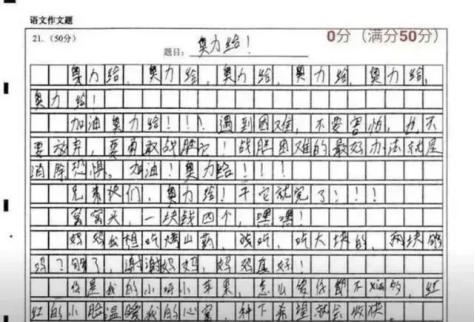 语文作文题
21.（50分）
0分（满分50分）
题目：奥力给！
奥力给，奥力给，奥力给，奥力给，奥力给，
奥力给！
加油奥力给！！！遇到困难，不要害怕，也不
要放弃，要勇敢战胜它！战胜困难的最好办法就是
消除恐惧，加油！奥力给！！！！
兄弟们，奥力给！干它就完了！！！！
窝窝头，一块钱四个，嘿嘿！
妈妈
够了，谢谢妈妈，妈妈真好！
你是我的小呀小苹果，怎么
红的小脸温暖我的心窝，种下希望就会收获，